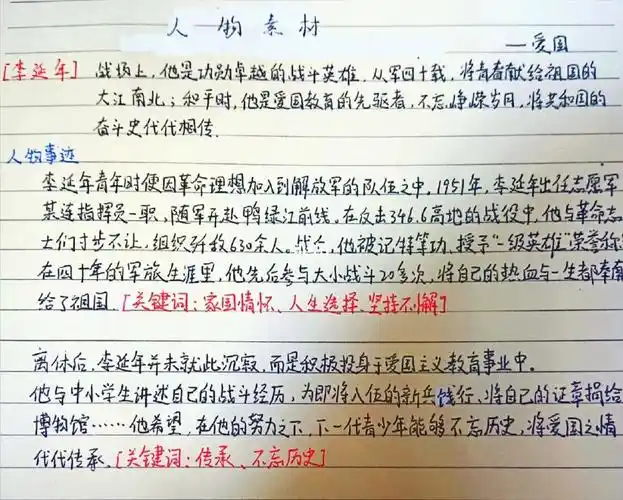 人物素材
—爱国
[李延年] 战场上，他是功勋卓越的战斗英雄，从军四十载，将青春献给祖国的
大江南北；和平时，他是爱国教育的先驱者，不忘峥嵘岁月，将共和国的
奋斗史代代相传.
人物事迹
李延年青年时便因革命理想加入到解放军的队伍之中，1951年，李延年出任志愿军
某连指挥员一职，随军开赴鸭绿江前线。在反击346.6高地的战役中，他与革命志
士们寸步不让，组织歼敌630余人。战后，他被记特等功，授予"一级英雄"荣誉称
在四十年的军旅生涯里，他先后参与大小战斗20多次，将自己的热血与一生都奉献
给了祖国.[关键词：家国情怀、人生选择、坚持不懈]
离休后，李延年并未就此沉寂，而是积极投身于爱国主义教育事业中。
他与中小学生讲述自己的战斗经历，为即将入伍的新兵饯行，将自己的证章捐给
博物馆……他希望，在他的努力之下，下一代青少年能够不忘历史，将爱国之情
代代传承.[关键词：传承、不忘历史]